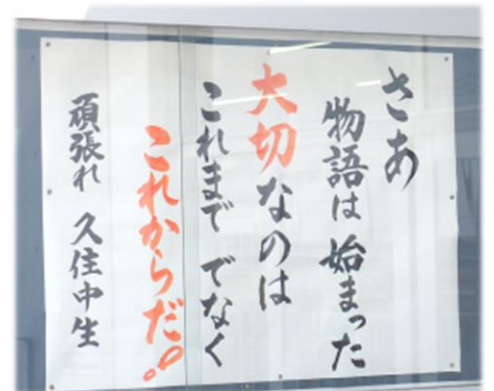 さあ
物語は 始まった
大切なのは
これまで でなく
これからだ!!
頑張れ 久住中生